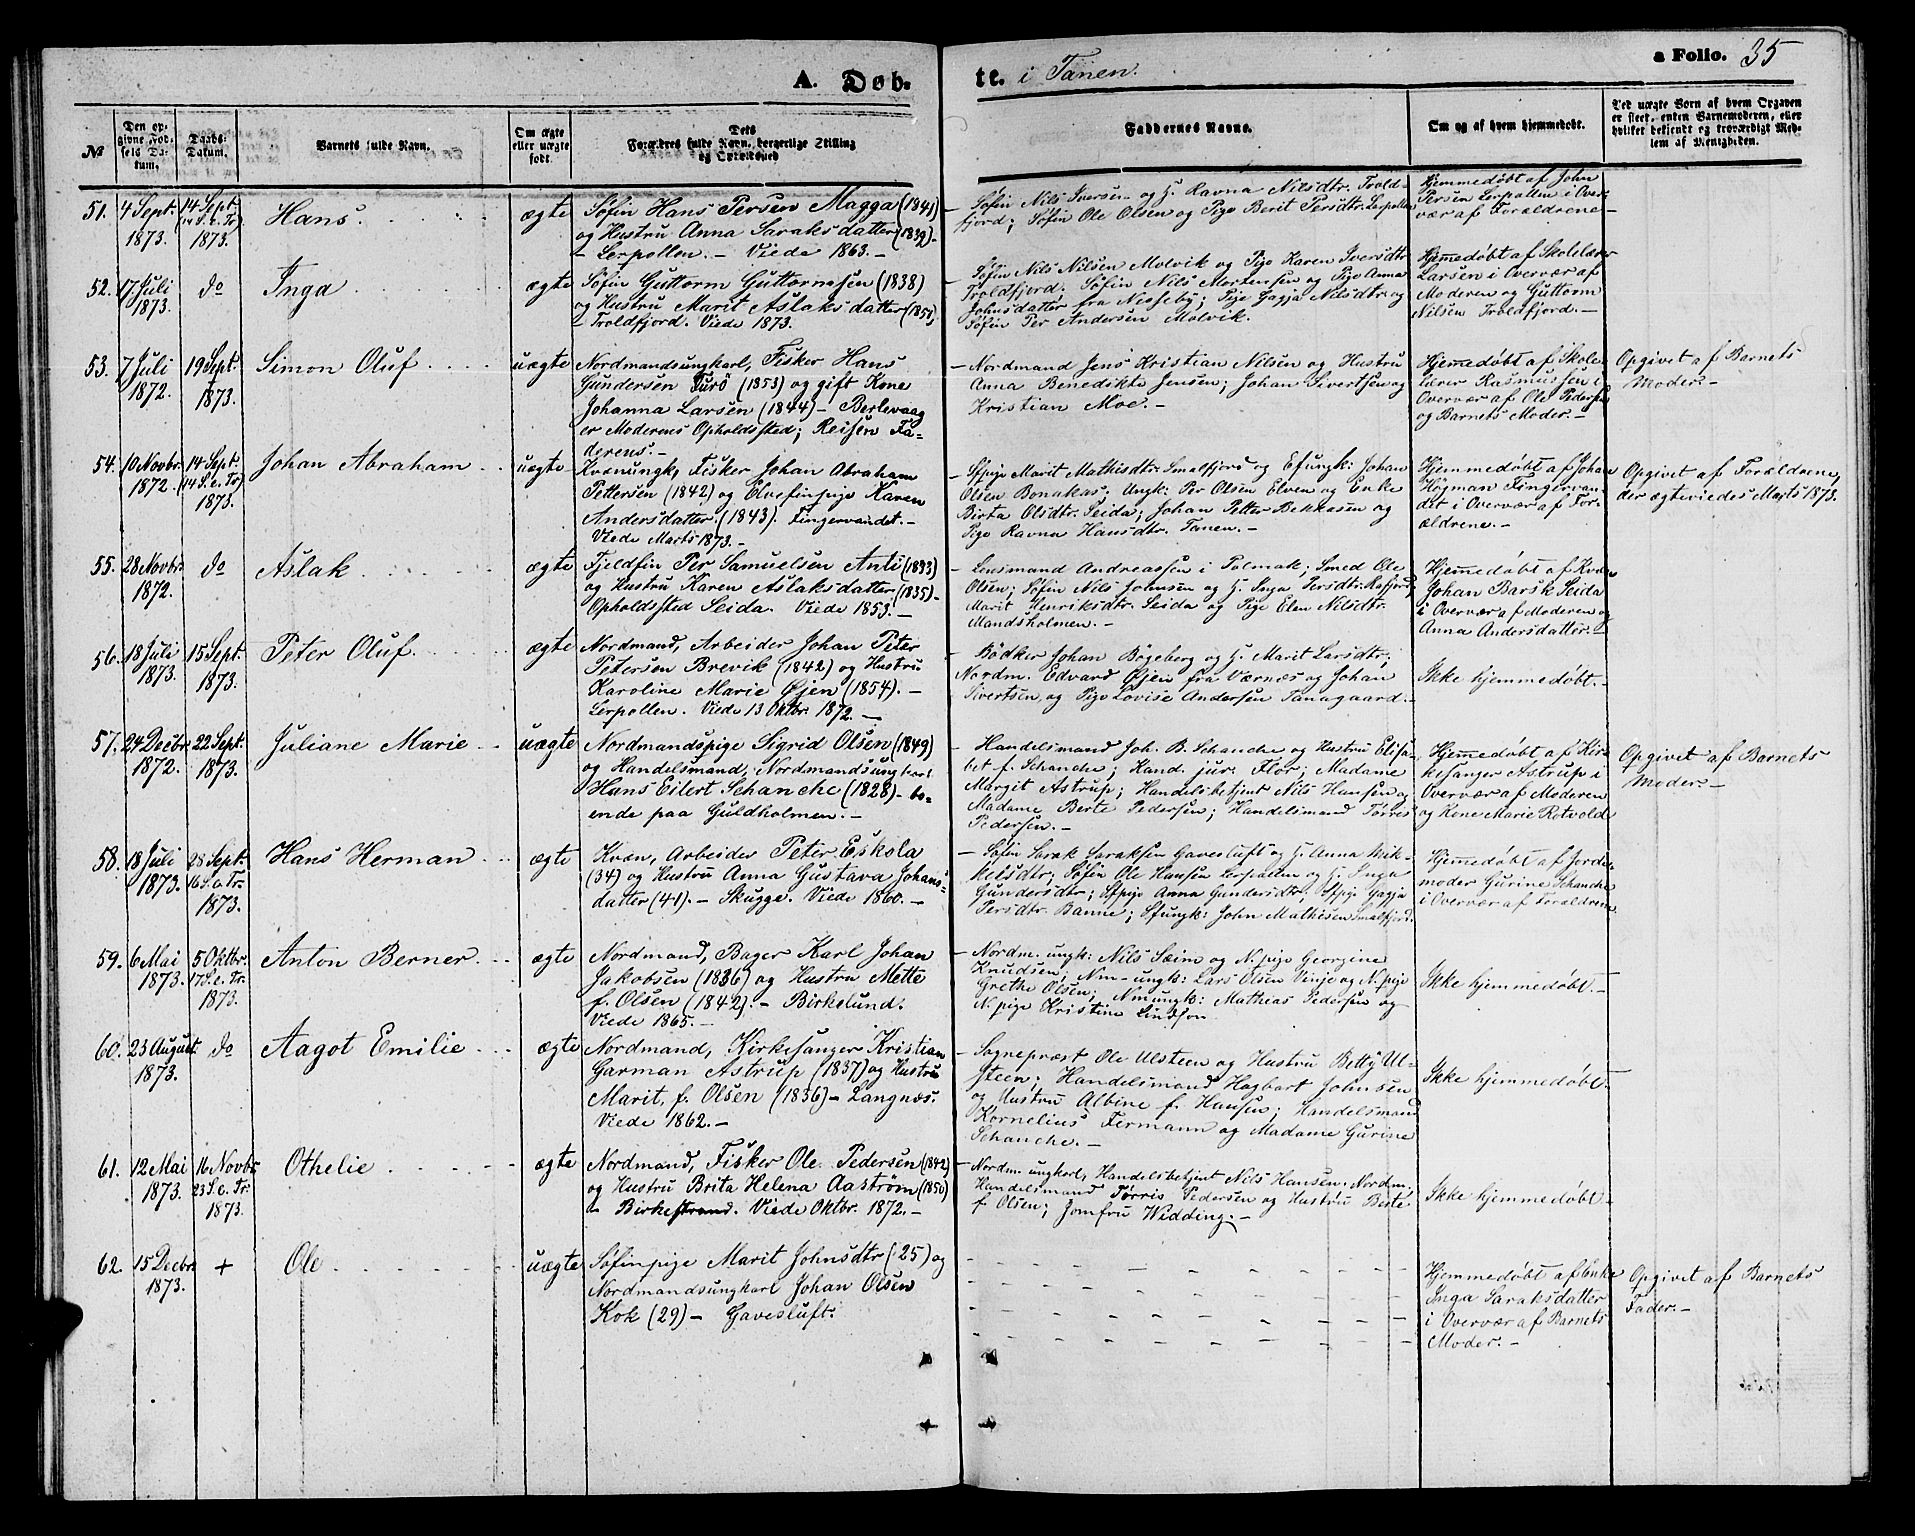 A. Døb-
te. i Tanen.
a Folio. 35
№
Den op-
givne Fød-
sels Da-
tum.
Daabs-
Datum.
Barnets fulde Navn.
Om ægte
eller uægte
født.
Dets
Forældres fulde Navn, borgerlige Stilling
og Opholdssted
Faddernes Navne.
Om og af hvem hjemmedøbt.
Ved uægte Børn af hvem Opgaven
er skeet, enten Barnemoderen, eller
hvilket bekjendt og troværdigt Med-
lem af Menigheden.
51. 4 Sept.
1873.
14 Sept.
(14 S. e. Tr)
1873.
Hans.
ægte
Søfin Hans Persen Magga (1841)
og Hustru Anna Saraksdatter (1839)-
- Lerpollen. - Viede 1863. -
- Søfin Nils Iversen og H. Ravna Nilsdtr. Trold-
fjord; Søfin Ole Olsen og Pige Berit Persdtr. Lerpollen
Hjemmedøbt af John
Persen Lerpollen i Over-
vær af Forældrene -
52. 17 Juli
1873.
do
Inga
ægte
Søfin Guttorm Guttormsen (1838)
og Hustru Marit Aslaksdatter (1851)
- Troldfjord. Viede 1873.
- Søfin Nils Nilsen Molvik og Pige Karen Iversdtr
Troldfjord. Søfin Nils Mortensen og Pige Anna
Johnsdatter fra Nesseby; Pige Gagja Nilsdtr. og
Søfin Per Andersen Molvik.
Hjemmedøbt af Skolelærer
Larsen i Overvær af
Moderen og Guttorm
Nilsen Troldfjord. -
53. 7 Juli
1872.
19 Sept.
1873.
Simon Oluf
uægte
Nordmandsungkarl, Fisker Hans
Gundersen Turö (1853) og gift Kone
Johanna Larsen (1844) - Berlevaag
er Moderens Opholdssted; Reisen Fa-
derens. -
- Nordmand Jens Kristian Nilsen og Hustru
Anna Benedikte Jensen; Johan Sivertsen og
Kristian Moe. -
Hjemmedøbt af Skole-
lærer Rasmussen i
Overvær af Ole Pedersen
og Barnets Moder. -
Opgivet af Barnets
Moder. -
54. 10 Novbr.
1872.
14 Sept.
(14 S. e. Tr)
1873.
Johan Abraham
uægte
Kvænungk, Fisker Johan Abraham
Pettersen (1842) og Elvefinpige Karen
Andersdatter. (1843). Fingervandet. -
Viede Marts 1873. -
- Sfpige Marit Mathisdtr. Smalfjord og Efungk: Johan
Olsen Bonakas; Ungk: Per Olsen Elven og Enke
Birta Olsdtr. Seida; Johan Petter Bekkasen og
Pige Ravna Hansdtr. Tanen. -
Hjemmedøbt af Johan
Högman Fingervan-
det i Overvær af For-
ældrene. -
Opgivet af Forældrene,
der ægteviedes Marts 1873.
55. 28 Novbr.
1872.
do
Aslak
ægte
Fjeldfin Per Samuelsen Anti (1833)
og Hustru Karen Aslaksdatter (1835) -
Opholdssted Seida. Viede 1853. -
- Lensmand Andreassen i Polmak; Smed Ole
Olsen; Søfin Nils Johnsen og H. Inga Persdtr.
Marit Henriksdtr. Seida og Pige Elen Nilsdtr.
Mandsholmen. -
Hjemmedøbt af Kvæn
Johan Barsk Seida
i Overvær af Moderen og
Anna Andersdatter. -
56. 18 Juli
1873.
15 Sept.
1873.
Peter Oluf
ægte
Nordmand, Arbeider Johan Peter
Petersen Brevik (1842) og Hustru
Karoline Marie Øjen (1854). -
Lerpollen. Viede 13 Oktbr. 1872. -
- Bödker Johan Bögeberg og H. Marit Larsdtr;
Nordm. Edvard Øjen fra Værnæs og Johan
Sivertsen og Pige Lovise Andersen Tanagaard. -
Ikke hjemmedøbt. -
57. 24 Decbr.
1872.
22 Sept.
1873.
Juliane Marie
uægte
Nordmandspige Sigrid Olsen (1849)
og Handelsmand, Nordmandsungkarl
Hans Eilert Schanche (1828) - bo-
ende paa Guldholmen. -
- Handelsmand Joh. B. Schanche og Hustru Elisa-
bet f. Schanche; Kand. jur. Flor; Madame
Margit Astrup; Handelsbetjent Nils Hansen og
Madame Berte Pedersen; Handelsmand Tørris
Pedersen. -
Hjemmedøbt af Kir-
kesanger Astrup i
Overvær af Moderen
og Kone Marie Rotvold
Opgivet af Barnets
Moder. -
58. 18 Juli
1873.
28 Sept.
16 S. e. Tr.
1873.
Hans Herman
ægte
Kvæn, Arbeider Peter Eskola
(34) og Hustru Anna Gustava Johans-
datter (41). - Skugge. Viede 1860. -
- Søfin Sarak Saraksen Gavesluft og H. Anna Mik-
kelsdtr; Søfin Ole Hansen Lerpollen og H. Inga
Gundersdtr; Sfpige Anna Gundersdtr; Sfpige Gagja
Persdtr. Banne; Sfungk: John Mathisen Smalfjord.
Hjemmedøbt af Jorde-
moder Gurine Schanche
i Overvær af Forældrene
59. 6 Mai
1873.
5 Oktbr.
17 S. e. Tr.
1873.
Anton Berner
ægte
Nordmand, Bager Karl Johan
Jakobsen (1836) og Hustru Mette
f. Olsen (1842). - Birkelund.
Viede 1865. -
- Nordm. ungk: Nils Sæim og N. pige Georgine
Knudsen; Nm-ungk: Lars Olsen Vinje og N. pige
Grethe Olsen; Nmungk: Mathias Pedersen og
N. pige Kristine Lindson
Ikke hjemmedøbt. -
60. 23 August
1873.
do
Aagot Emilie
ægte
Nordmand, Kirkesanger Kristian
Garman Astrup (1837) og Hustru
Marit, f. Olsen (1836) - Langnæs.
Viede 1862. -
- Sognepræst Ole Ulsteen og Hustru Betty Ul-
steen; Handelsmand Hagbart Johnsen
og Hustru Albine f. Hansen; Handelsmand
Kornelius Fermann og Madame Gurine
Schanche. -
Ikke hjemmedøbt. -
61. 12 Mai
1873.
16 Novbr.
23 S. e. Tr.
1873.
Othelie
ægte
Nordmand, Fisker Ole Pedersen (1842)
og Hustru Brita Helena Aaström (1850)
- Birkestrand. Viede Oktbr. 1872. -
- Nordm. ungkarl, Handelsbetjent Nils Hansen, Nordm.
Handelsmand Tørris Pedersen og Hustru Berte
f. Olsen; Jomfru Widding. -
Ikke hjemmedøbt -
62. 15 Decbr
1873.
+
Ole
uægte
Søfinpige Marit Johnsdtr (25) og
Nordmandsungkarl Johan Olsen
Kok (29) - Gavesluft.
Hjemmedøbt af Enke
Inga Saraksdatter
i Overvær af Barnets
Moder. -
Opgivet af Barnets
Fader. -